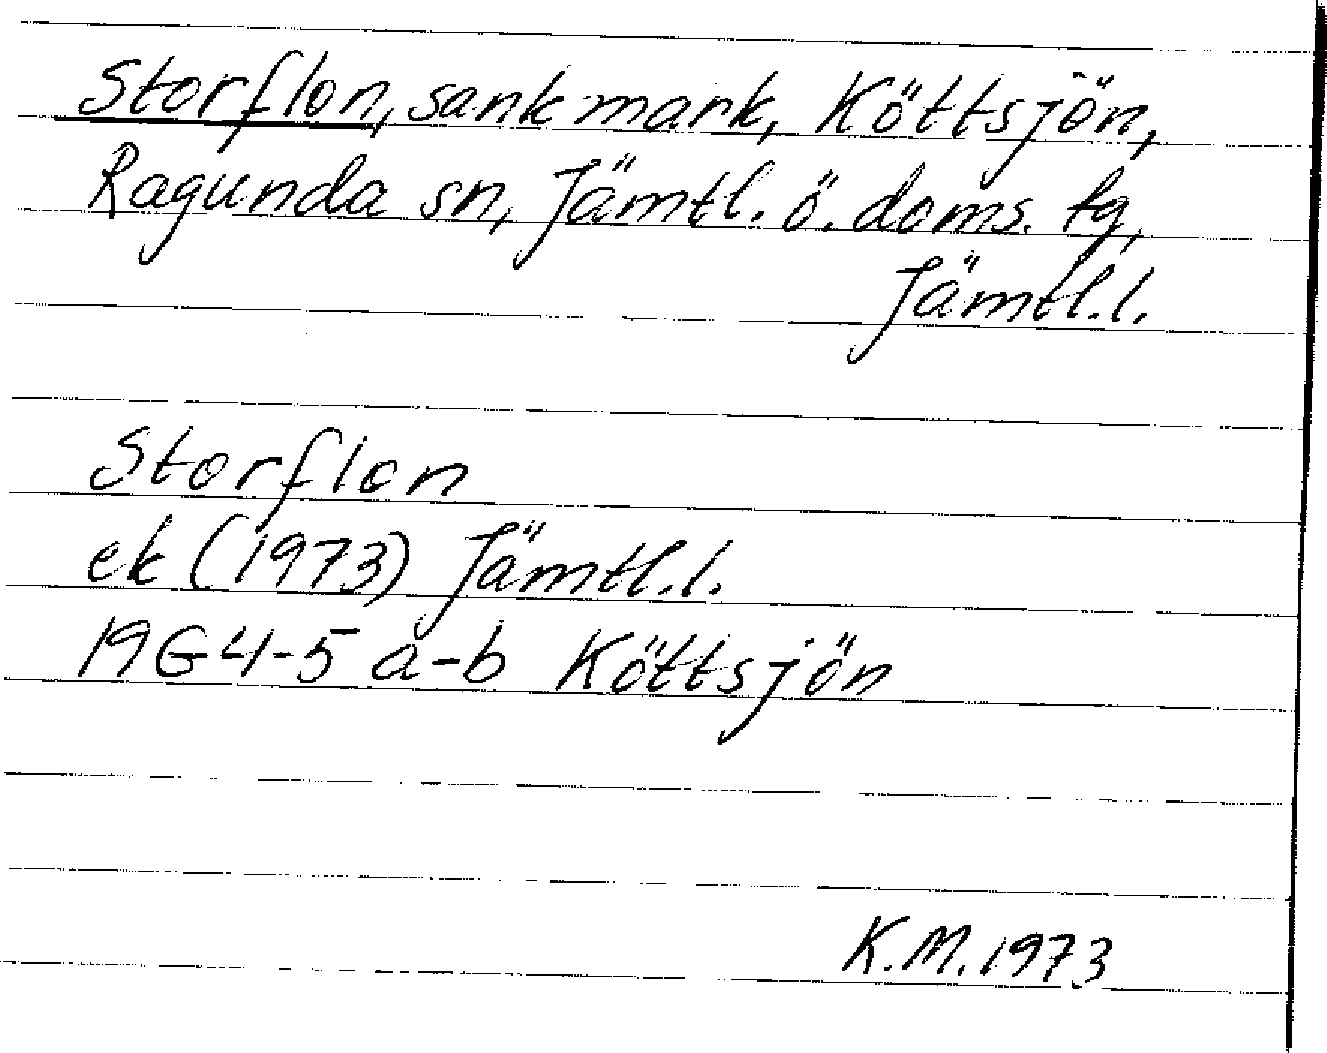 Storflon, sankmark, Köttsjön,
Ragunda sn, Jämtl. ö. doms. tg,
Jämtl.l.
Storflon
ek (1973) Jämtl.l.
19G 4-5 a-b Köttsjön
K.M. 1973